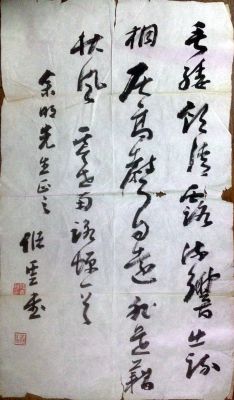 垂緌飲清露流響出疏
桐居高聲自遠非是藉
秋風 虞世南詠蟬一首
余明先生正之